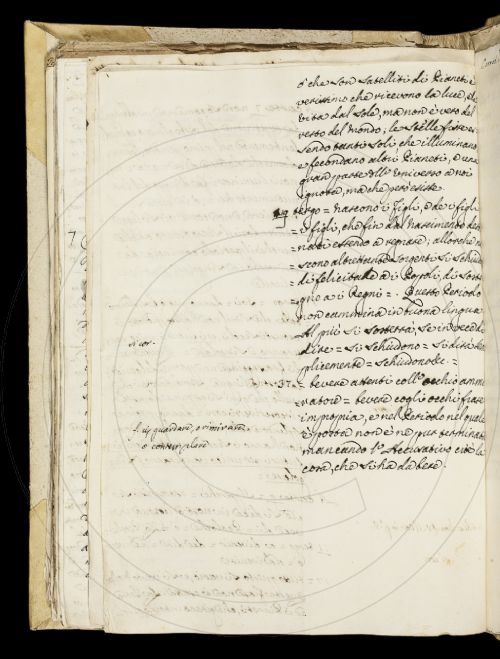 o che son satelliti di Pianeti è
verissimo che ricevono la luce, e la
vita dal Sole, ma non è vero del
resto del Mondo; le Stelle fisse es-
sendo tanti Soli che illuminano,
e fecondano altri Pianeti, e una
gran parte dell'Universo a noi
ignota, ma che però esiste.
tergo = nascono i Figli, e de i figli
= i figli, che fin dal nascimento des-
= nati essendo a regnare; allorche na-
scono altrettante Sorgenti si Schiudono
di felicità a i Popoli, di Sost-
gno a i Regni = . Questo Periodo
non cammina in buona lingua
Al più si
dire = si Schiudono = si dirà sem-
plicemente = Schiudono &c. =
vicor.
37. = bevere attenti coll'occhio ammi-
ratore = bevere cogli occhi frase
impropia, e nel Periodo nel quale
è posta non è ne pur terminata
mancando l'Accusativo cioè la
cosa, che si ha da bere.
riguardare, e rimirare
o contemplare